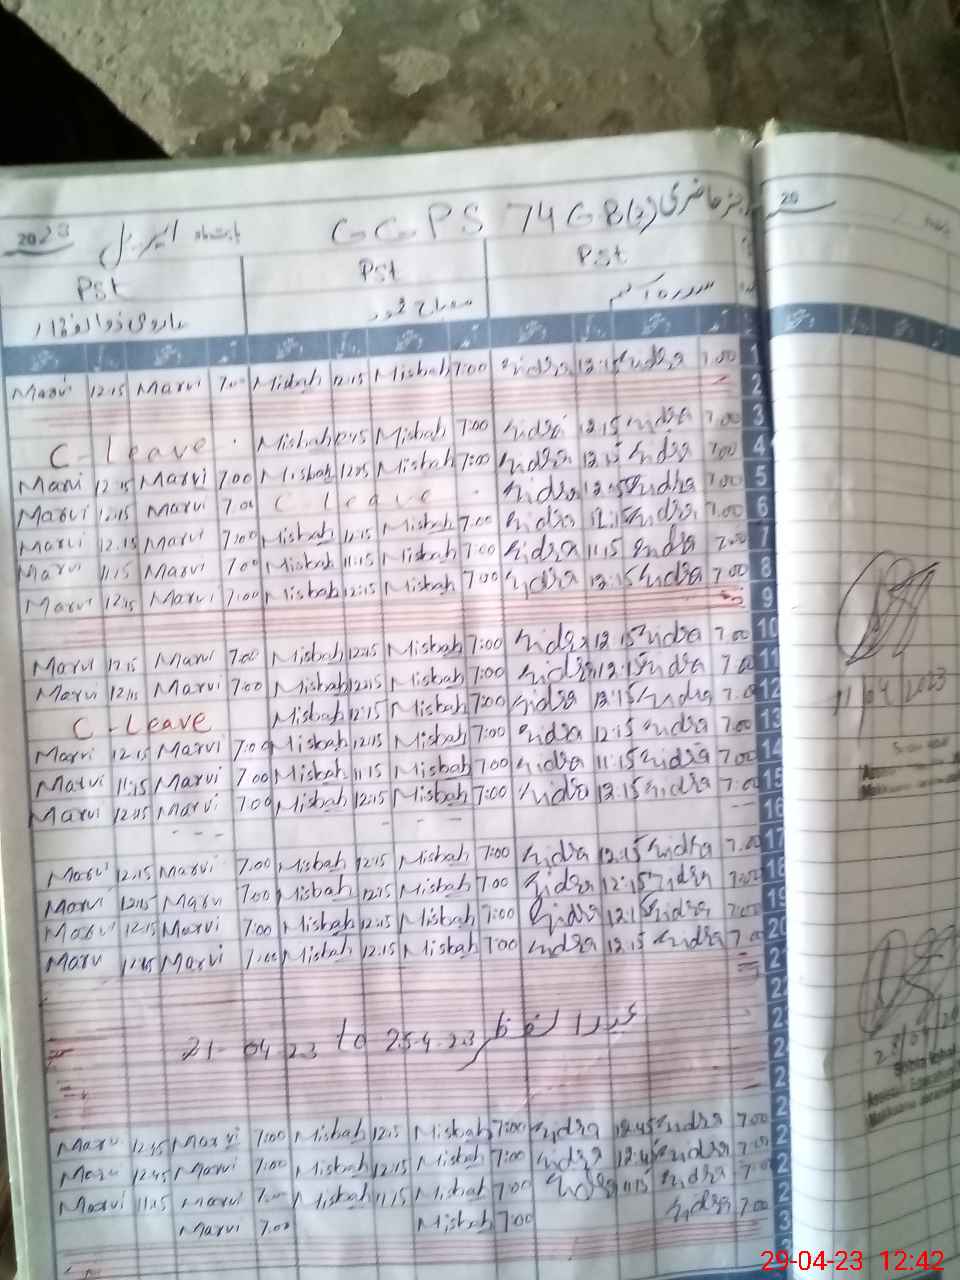 2023 بابت ماہ اپریل GGPS 74 GB(2) رجسٹر حاضری 20
Pst Pst Pst
ماروی ذوالفقار مصباح سدرہ
Marvi 12:15 Marvi 7:00 Misbah 12:15 Misbah 7:00 Sidra 12:15 Sidra 7:00 1
2
C-Leave Misbah 12:15 Misbah 7:00 Sidra 12:15 Sidra 7:00 3
Marvi 12:15 Marvi 7:00 Misbah 12:15 Misbah 7:00 Sidra 12:15 Sidra 7:00 4
Marvi 12:15 Marvi 7:00 C Leave Sidra 12:15 Sidra 7:00 5
Marvi 12:15 Marvi 7:00 Misbah 12:15 Misbah 7:00 Sidra 12:15 Sidra 7:00 6
Marvi 11:15 Marvi 7:00 Misbah 11:15 Misbah 7:00 Sidra 11:15 Sidra 7:00 7
Marvi 12:15 Marvi 7:00 Misbah 12:15 Misbah 7:00 Sidra 12:15 Sidra 7:00 8
9
Marvi 12:15 Marvi 7:00 Misbah 12:15 Misbah 7:00 Sidra 12:15 Sidra 7:00 10
Marvi 12:15 Marvi 7:00 Misbah 12:15 Misbah 7:00 Sidra 12:15 Sidra 7:00 11
C-Leave Misbah 12:15 Misbah 7:00 Sidra 12:15 Sidra 7:00 12
Marvi 12:15 Marvi 7:00 Misbah 12:15 Misbah 7:00 Sidra 12:15 Sidra 7:00 13
Marvi 11:15 Marvi 7:00 Misbah 11:15 Misbah 7:00 Sidra 11:15 Sidra 7:00 14
Marvi 12:15 Marvi 7:00 Misbah 12:15 Misbah 7:00 Sidra 12:15 Sidra 7:00 15
16
Marvi 12:15 Marvi 7:00 Misbah 12:15 Misbah 7:00 Sidra 12:15 Sidra 7:00 17
Marvi 12:15 Marvi 7:00 Misbah 12:15 Misbah 7:00 Sidra 12:15 Sidra 7:00 18
Marvi 12:15 Marvi 7:00 Misbah 12:15 Misbah 7:00 Sidra 12:15 Sidra 7:00 19
Marvi 12:15 Marvi 7:00 Misbah 12:15 Misbah 7:00 Sidra 12:15 Sidra 7:00 20
21-04-23 to 25-4-23 عیدالفطر
Marvi 12:45 Marvi 7:00 Misbah 12:15 Misbah 7:00 Sidra 12:45 Sidra 7:00
Marvi 12:45 Marvi 7:00 Misbah 12:15 Misbah 7:00 Sidra 12:45 Sidra 7:00
Marvi 11:15 Marvi 7:00 Misbah 11:15 Misbah 7:00 Sidra 11:15 Sidra 7:00
Marvi 7:00 Misbah 7:00 Sidra 7:00
11/04/2023
29-04-23 12:42